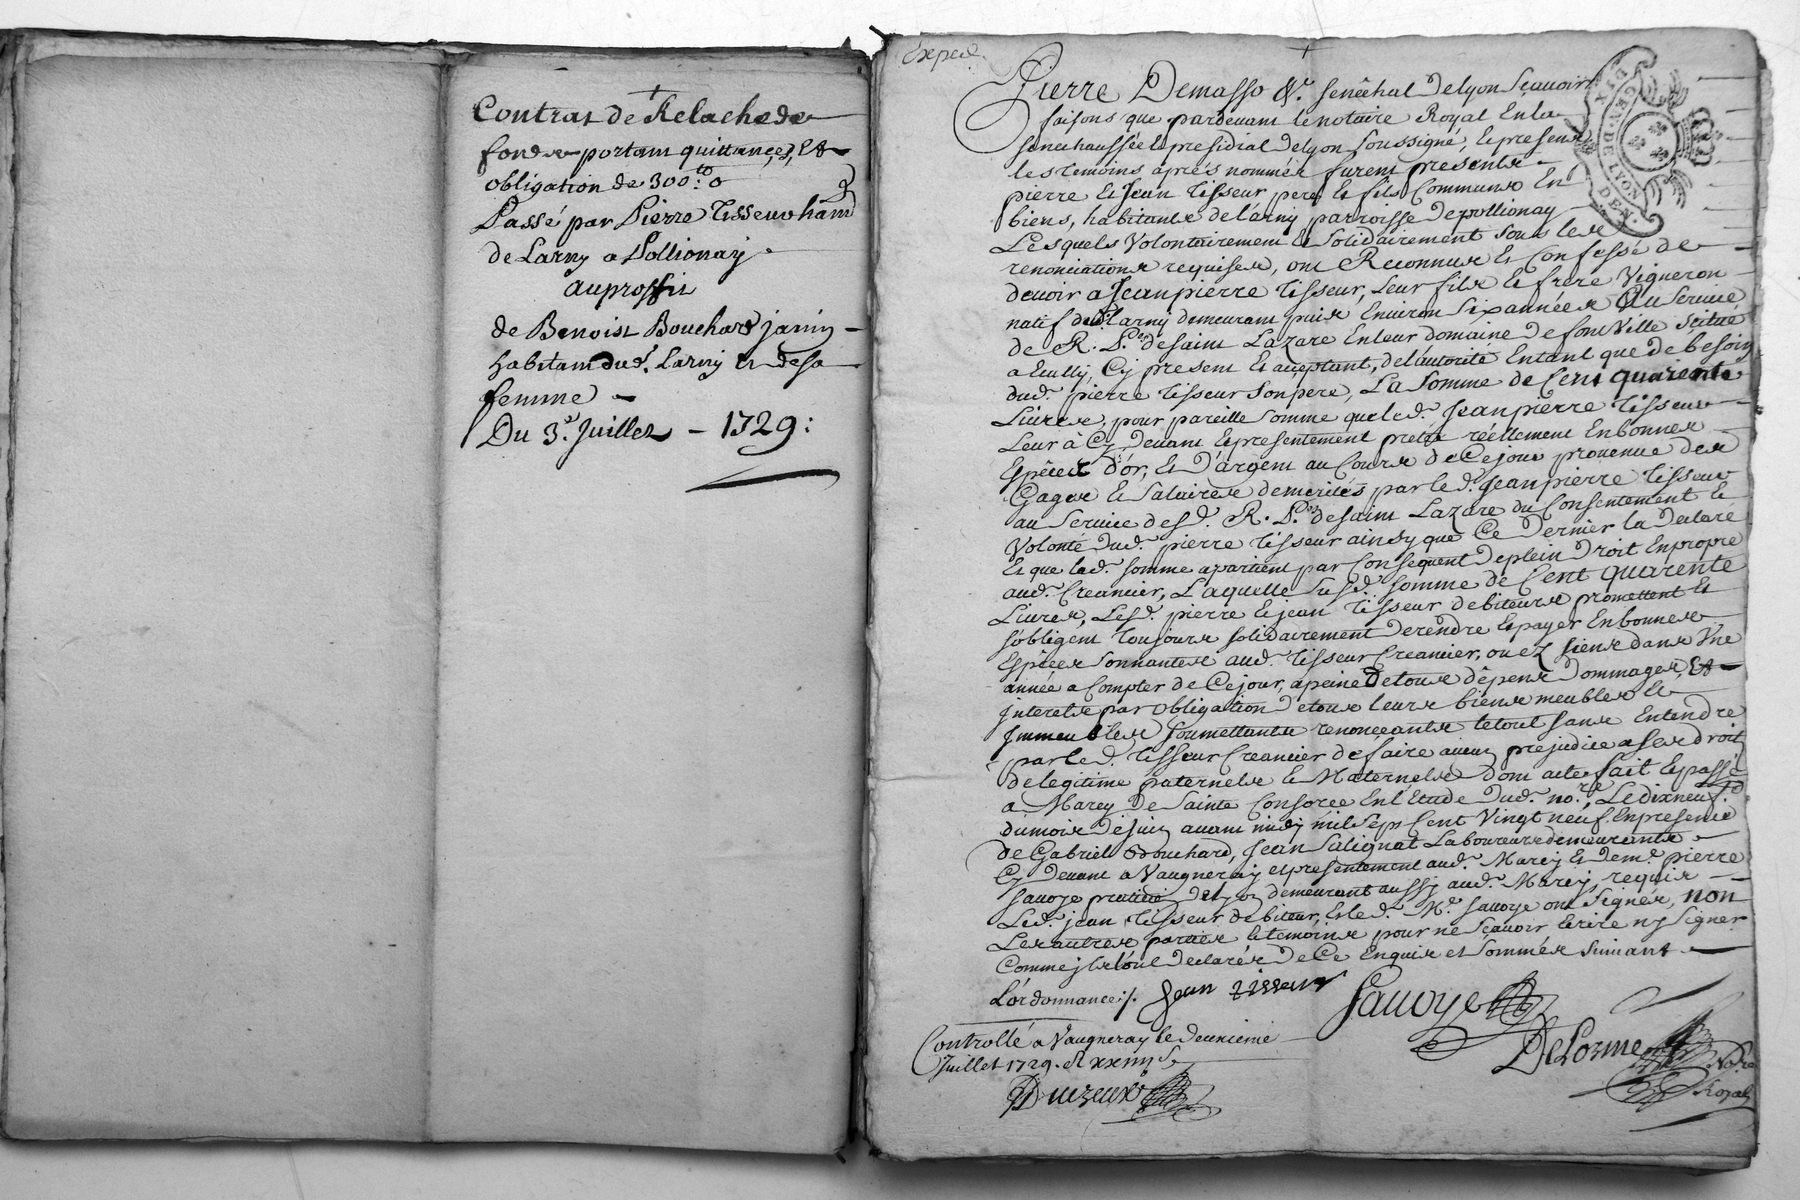 Contrat de Relache de
fonds portant quittances, Et
obligation de 300 :to
Passé par Pierre Tisseur ha͠nt
de Larny a Pollionay
auproffit
de Benoist Bouchard janin
habitant dud. Larny et de sa
femme
Du 3e Juillet - 1729 :
Exped.
Pierre Demasso &c. senêchal De lyon sçauoir
faisons que pardeuant le notaire Royal En la
senechaussée Et presidial De lyon soussigné, Et presens
les temoins aprés nommés furent presents
pierre Et Jean Tisseur pere Et fils Communs En
biens, habitants de Larny parroisse de pollionay
Lesquels Volontairement Et solidairement sous les
renonciations requises, ont Reconnus Et Confessé de
deuoir a Jean pierre Tisseur, Leur fils Et frere Vigneron
natif dud. Larny demeurant puis Enuiron six années Au seruice
de R. P. de saint Lazare En leur domaine de fontVille scitué
a Ecully, Cy present Et acceptant, de l'autorité Entant que de besoin
dud. pierre Tisseur son pere, La somme de Cent quarente
Liures, pour pareille somme que led. Jean pierre Tisseur
Leur à Cy deuant Et presentement preté réellement En bonnes
Espêces d'or, Et D'argent au Cours de Ce jour prouenue des
Gages Et salaires demerités par led. Jean pierre Tisseur
au seruice desd. R. P. de saint Lazare du Consentement Et
Volonté dud. pierre Tisseur ainsy que Ce Dernier la Declaré
Et que lad. somme apartient par Consequent de plein Droit En propre
aud. Creancier, L'aquelle susd. somme de Cent quarente
Liures, Lesd. pierre Et jean Tisseur debiteurs promettent Et
s'obligent toujours solidairement De rendre Et payer En bonnes
Espêces sonnantes aud. Tisseur Creancier, ou ez siens dans Vne
année a Compter de Ce jour, a peine De tous dêpens Dommages, Et
Interets par obligation De tous leurs biens meubles Et
Immeubles soumettants renonceants Le tout sans Entendre
par led. Tisseur Creancier de faire aucun prejudice a ses droits
De legitime paternels Et Maternels Dont acte fait Et passé
a Marcy De Sainte Consorce En l'Etude Dud. no.re, Le dixneuf.e
Du mois De juin auant midy mil sept Cent Vingt neuf En presence
de Gabriel Bouchard, Jean Salignat Laboureurs demeurants
Cy Deuant a Vaugneray et presentement aud. Marcy Et Dem.e pierre
sauoye praticien De lyon demeurant aussy aud. Marcy, requis
Led. jean Tisseur debiteur, Et led. M.e sauoye ont signés, non
Les autres parties Et temoins pour ne sçauoir Ecrire ny signer
Comme jls l'ont Declarés De Ce Enquis et sommés suiuant
L'ordonnance ./. Jean tisseur Sauoye
Controllé a Vaugneray le deuxieme
Juillet 1729. R xxiiii s
DeLorme
No.re
Royal
GEN. DE LYON